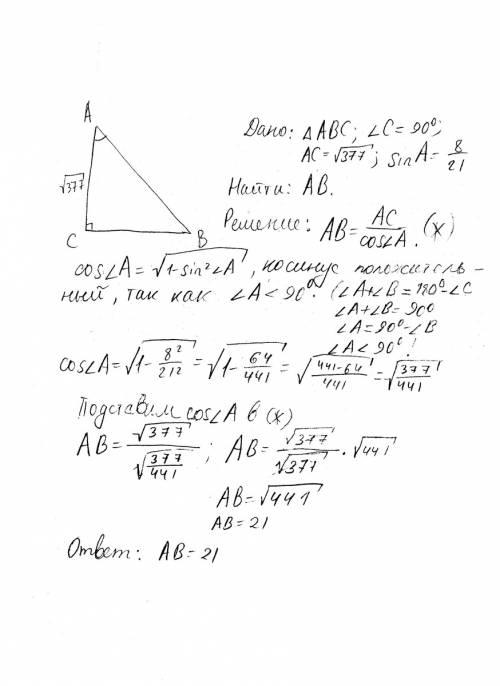 A
√377
C
B
Дано: △ABC; ∠C=90°;
AC=√377; sinA=8/21
Найти: AB.
Решение: AB=AC/cos∠A. (x)
cos∠A=√(1-sin²∠A), косинус положитель-
ный, так как ∠A<90°. (∠A+∠B=180°-∠C
∠A+∠B=90°
∠A=90°-∠B
∠A<90°!
cos∠A=√(1-8²/21²)=√(1-64/441)=√((441-64)/441)=√(377/441)
Подставим cos∠A в (x)
AB=√377/√(377/441); AB=√377/√377·√441
AB=√441
AB=21
Ответ: AB=21